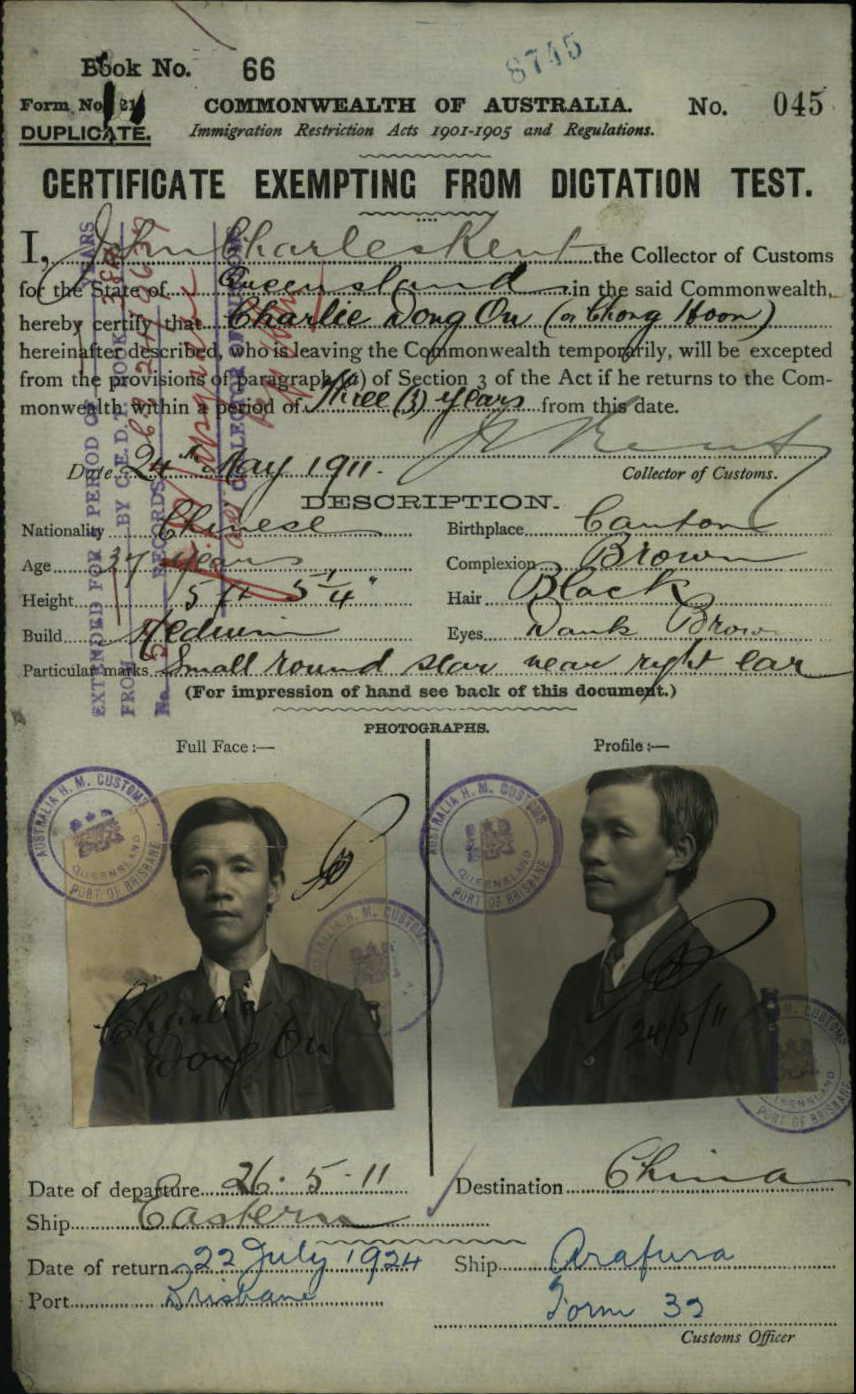 Book No. 66
8745
Form No. 21
DUPLICATE.
COMMONWEALTH OF AUSTRALIA.
No. 045
Immigration Restriction Acts 1901-1905 and Regulations.
CERTIFICATE EXEMPTING FROM DICTATION TEST.
I, John Charles Kent the Collector of Customs
for the State of Queensland in the said Commonwealth,
hereby certify that Charlie Dong On (or Chong Hoon)
hereinafter described, who is leaving the Commonwealth temporarily, will be excepted
from the provisions of paragraph (a) of Section 3 of the Act if he returns to the Com-
monwealth within a period of Three (3) years from this date.
Date 24th May 1911.
J C Kent
Collector of Customs.
EXTENDED FOR PERIOD OF YEARS
FROM BY C.E.D.
No. RECORDS
DESCRIPTION.
Nationality Chinese
Birthplace Canton
Age 37 years
Complexion Brown
Height 5 ft 5 1/4"
Hair Black
Build Medium
Eyes Dark Brown
Particular marks Small round scar near right ear
(For impression of hand see back of this document.)
PHOTOGRAPHS.
Full Face:—
Profile:—
AUSTRALIA H. M. CUSTOMS
QUEENSLAND
PORT OF BRISBANE
AUSTRALIA H. M. CUSTOMS
QUEENSLAND
PORT OF BRISBANE
H. M. CUSTOMS
H. M. CUSTOMS
QUEENSLAND
PORT OF BRISBANE
Charlie
Dong On
24/5/11
Date of departure 26.5.11
Destination China
Ship Eastern
Date of return 22 July 1924
Ship Arafura
Port Brisbane
Form 32
Customs Officer